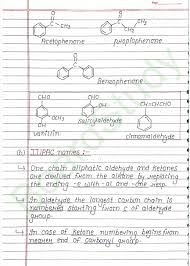 O
CH3
O
CH3
Acetophenone
propiophenone
O
Benzophenone
CHO
CHO
CH=CHCHO
OH
OCH3
OH
vanillin
salicylaldehyde
cinnamaldehyde
(b) IUPAC names :-
↳ One chain aliphatic aldehyde and ketones
are derived from the alkane by replacing
the ending -e with -al and -one resp.
↳ An aldehyde the longest carbon chain is
numbered starting from c of aldehyde
group.
↳ In case of ketone numbering begins from
nearer end of carbonyl group.